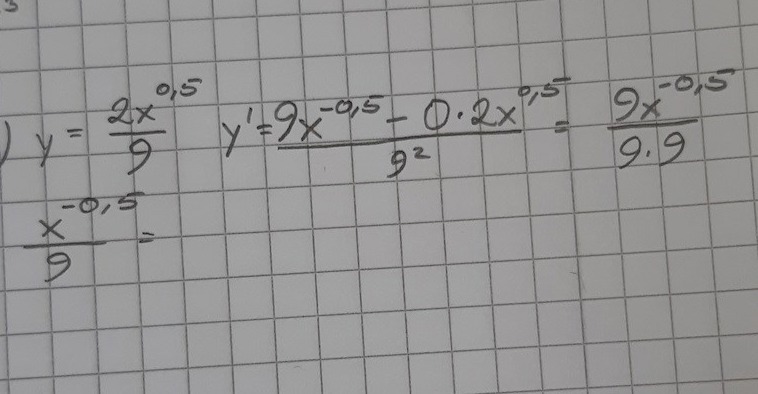 ) y = 2x^0,5 / 9 y' = 9x^-0,5 - 0·2x^0,5 / 9² = 9x^-0,5 / 9·9
x^-0,5 / 9 =